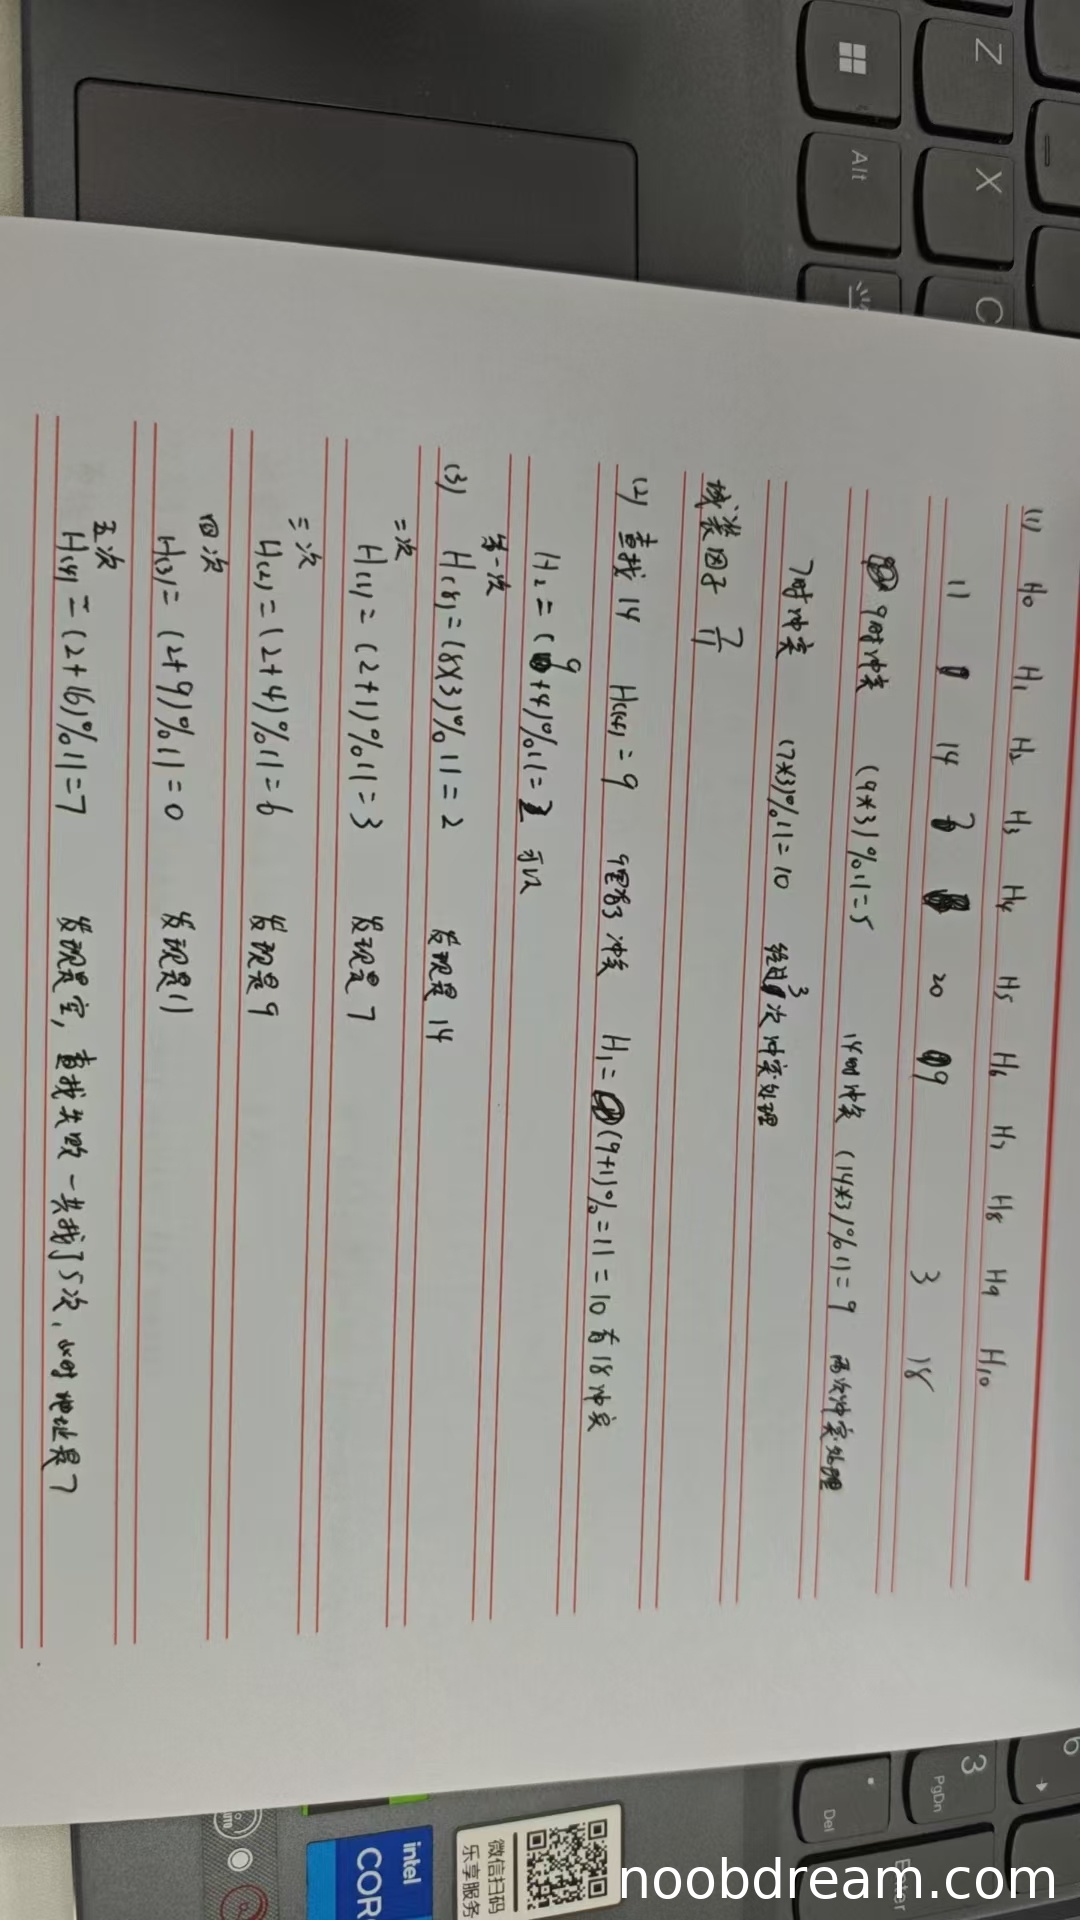 (1) H0 H1 H2 H3 H4 H5 H6 H7 H8 H9 H10
11 14 7 20 9 3 18
9时冲突 (9*3)%11=5 14时冲突 (14*3)%11=9 两次冲突处理
7时冲突 (7*3)%11=10 经过3次冲突处理
填装因子 7/11
(2) 查找14 H(14)=9 9里为3冲突 H1=(9+1)%=11=10有18冲突
H2=(9+4)%11=2 所以
第一次
(3) H(8)=(8X3)%11=2 发现是14
二次
H(1)=(2+1)%11=3 发现是7
三次
H(2)=(2+4)%11=6 发现是9
四次
H(3)=(2+9)%11=0 发现是11
五次
H(4)=(2+16)%11=7 发现是空,查找失败一共找了5次,此时地址是7
Z
X
C
Alt
6
3
PgDn
.
Del
Enter
intel
COR
微信扫码
乐享服务
noobdream.com